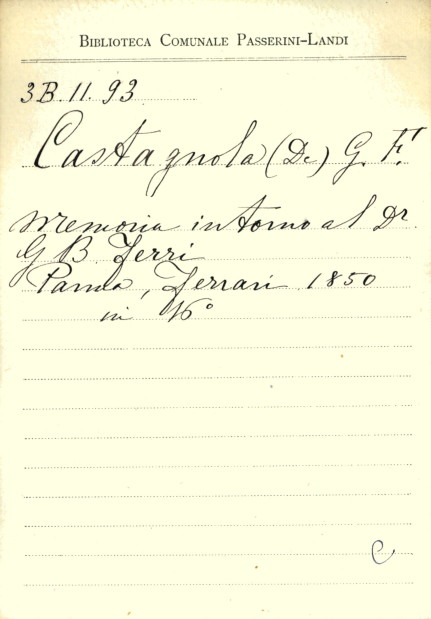 Biblioteca Comunale Passerini-Landi
3B.11.93
Castagnola (De) G. F.
Memoria intorno al Dr.
G B Ferri
Parma, Ferrari 1850
in 16°
C